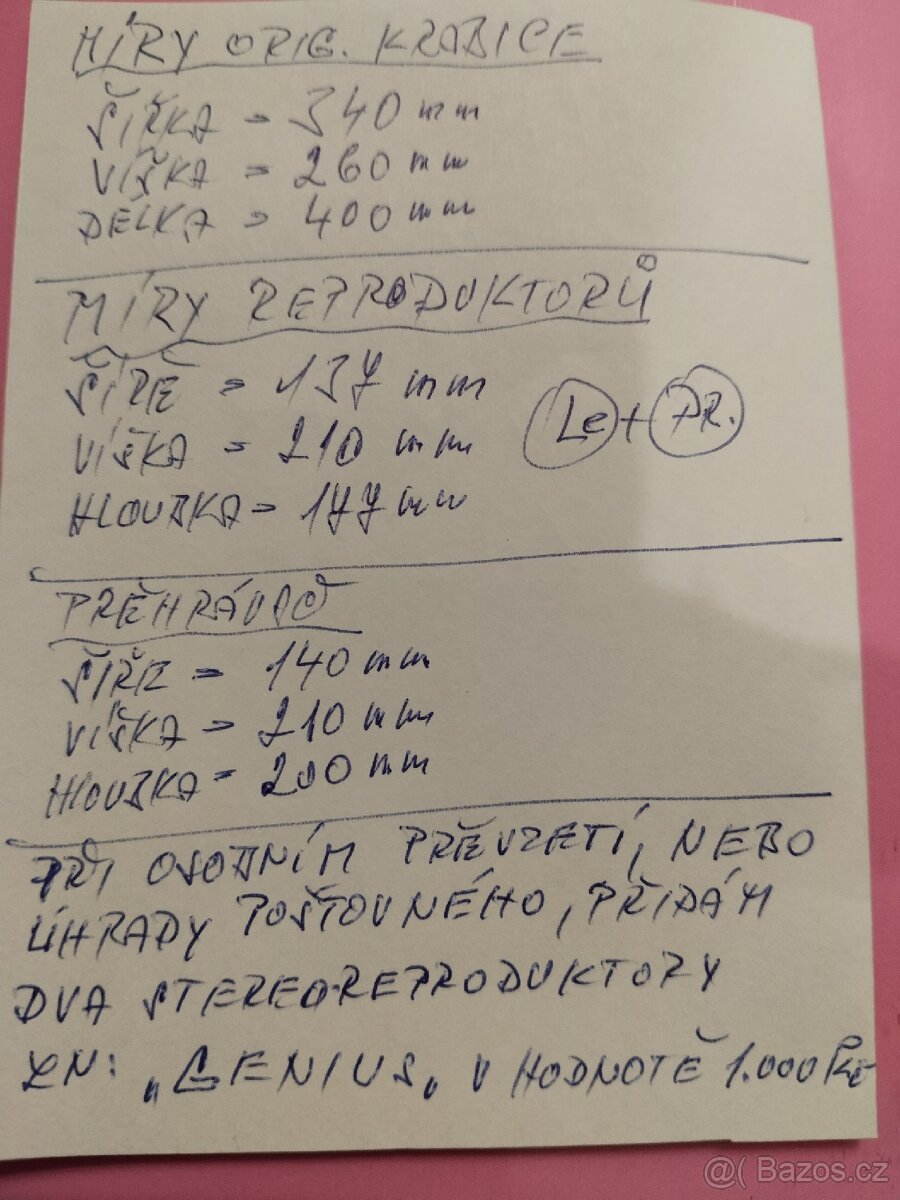 MÍRY ORIG. KRABICE
ŠÍŘKA = 340 mm
VÍŠKA = 260 mm
DÉLKA = 400 mm
MÍRY REPRODUKTORŮ
ŠÍŘE = 137 mm
Le + PR.
VÍŠKA = 210 mm
HLOUBKA = 177 mm
PŘEHRÁVAČ
ŠÍŘE = 140 mm
VÍŠKA = 210 mm
HLOUBKA = 200 mm
PŘI OSOBNÍM PŘEVZETÍ, NEBO
ÚHRADY POŠTOVNÉHO, PŘIDÁM
DVA STEREOREPRODUKTORY
ZN: „GENIUS„ V HODNOTĚ 1.000 Kč
@( Bazos.cz